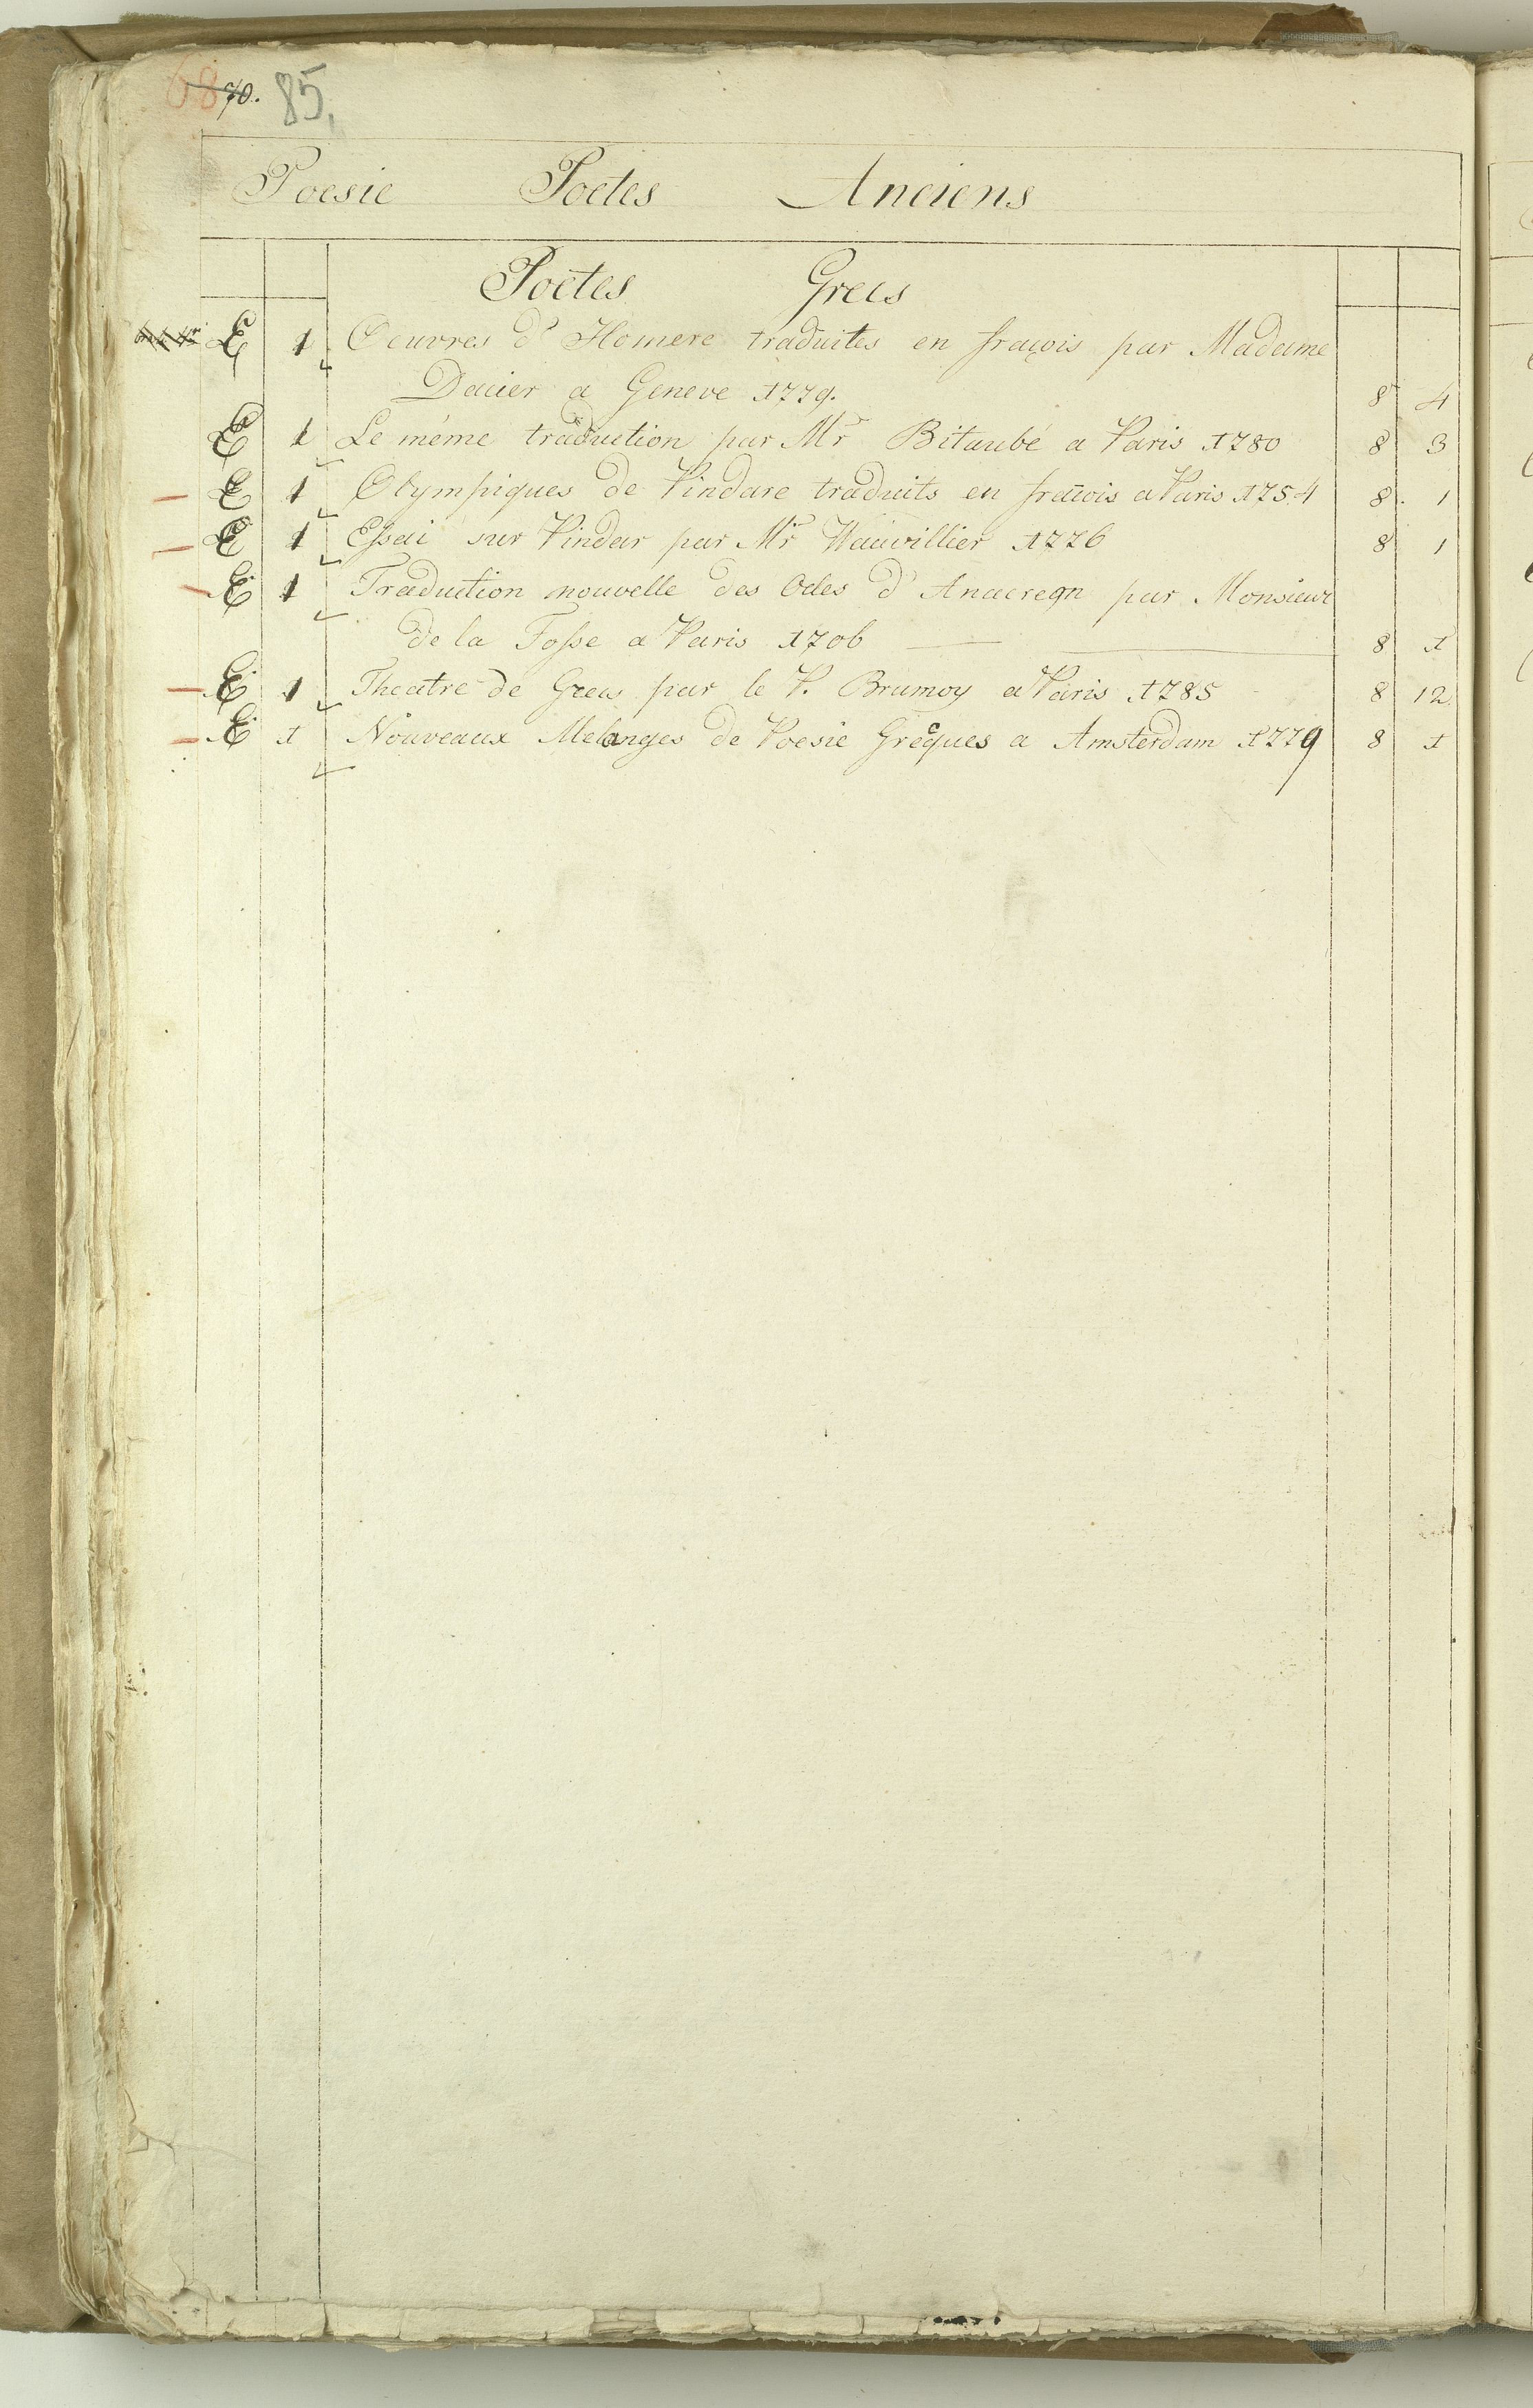 68 70. 85,
Poesie Poetes Anciens
Poëtes Grecs
E 1 Oeuvres d'Homere traduites en fraçois par Madame
Dacier a Geneve 1779. 8 4
E 1 Le méme traduction par Mr Bitaubé a Paris 1780 8 3
E 1 Olympiques de Pindare traduits en fraçois a Paris 1754 8. 1
E 1 Essai sur Pindar par Mr Wauvillier 1776 8 1
E 1 Traduction nouvelle des Odes d'Anacreon par Monsieur
de la Fosse a Paris 1706 8 1
E 1 Theatre de Grecs par le P. Brumoy a Paris 1785 8 12
E 1 Nouveaux Melanges de Poesie Greques a Amsterdam 1779 8 1